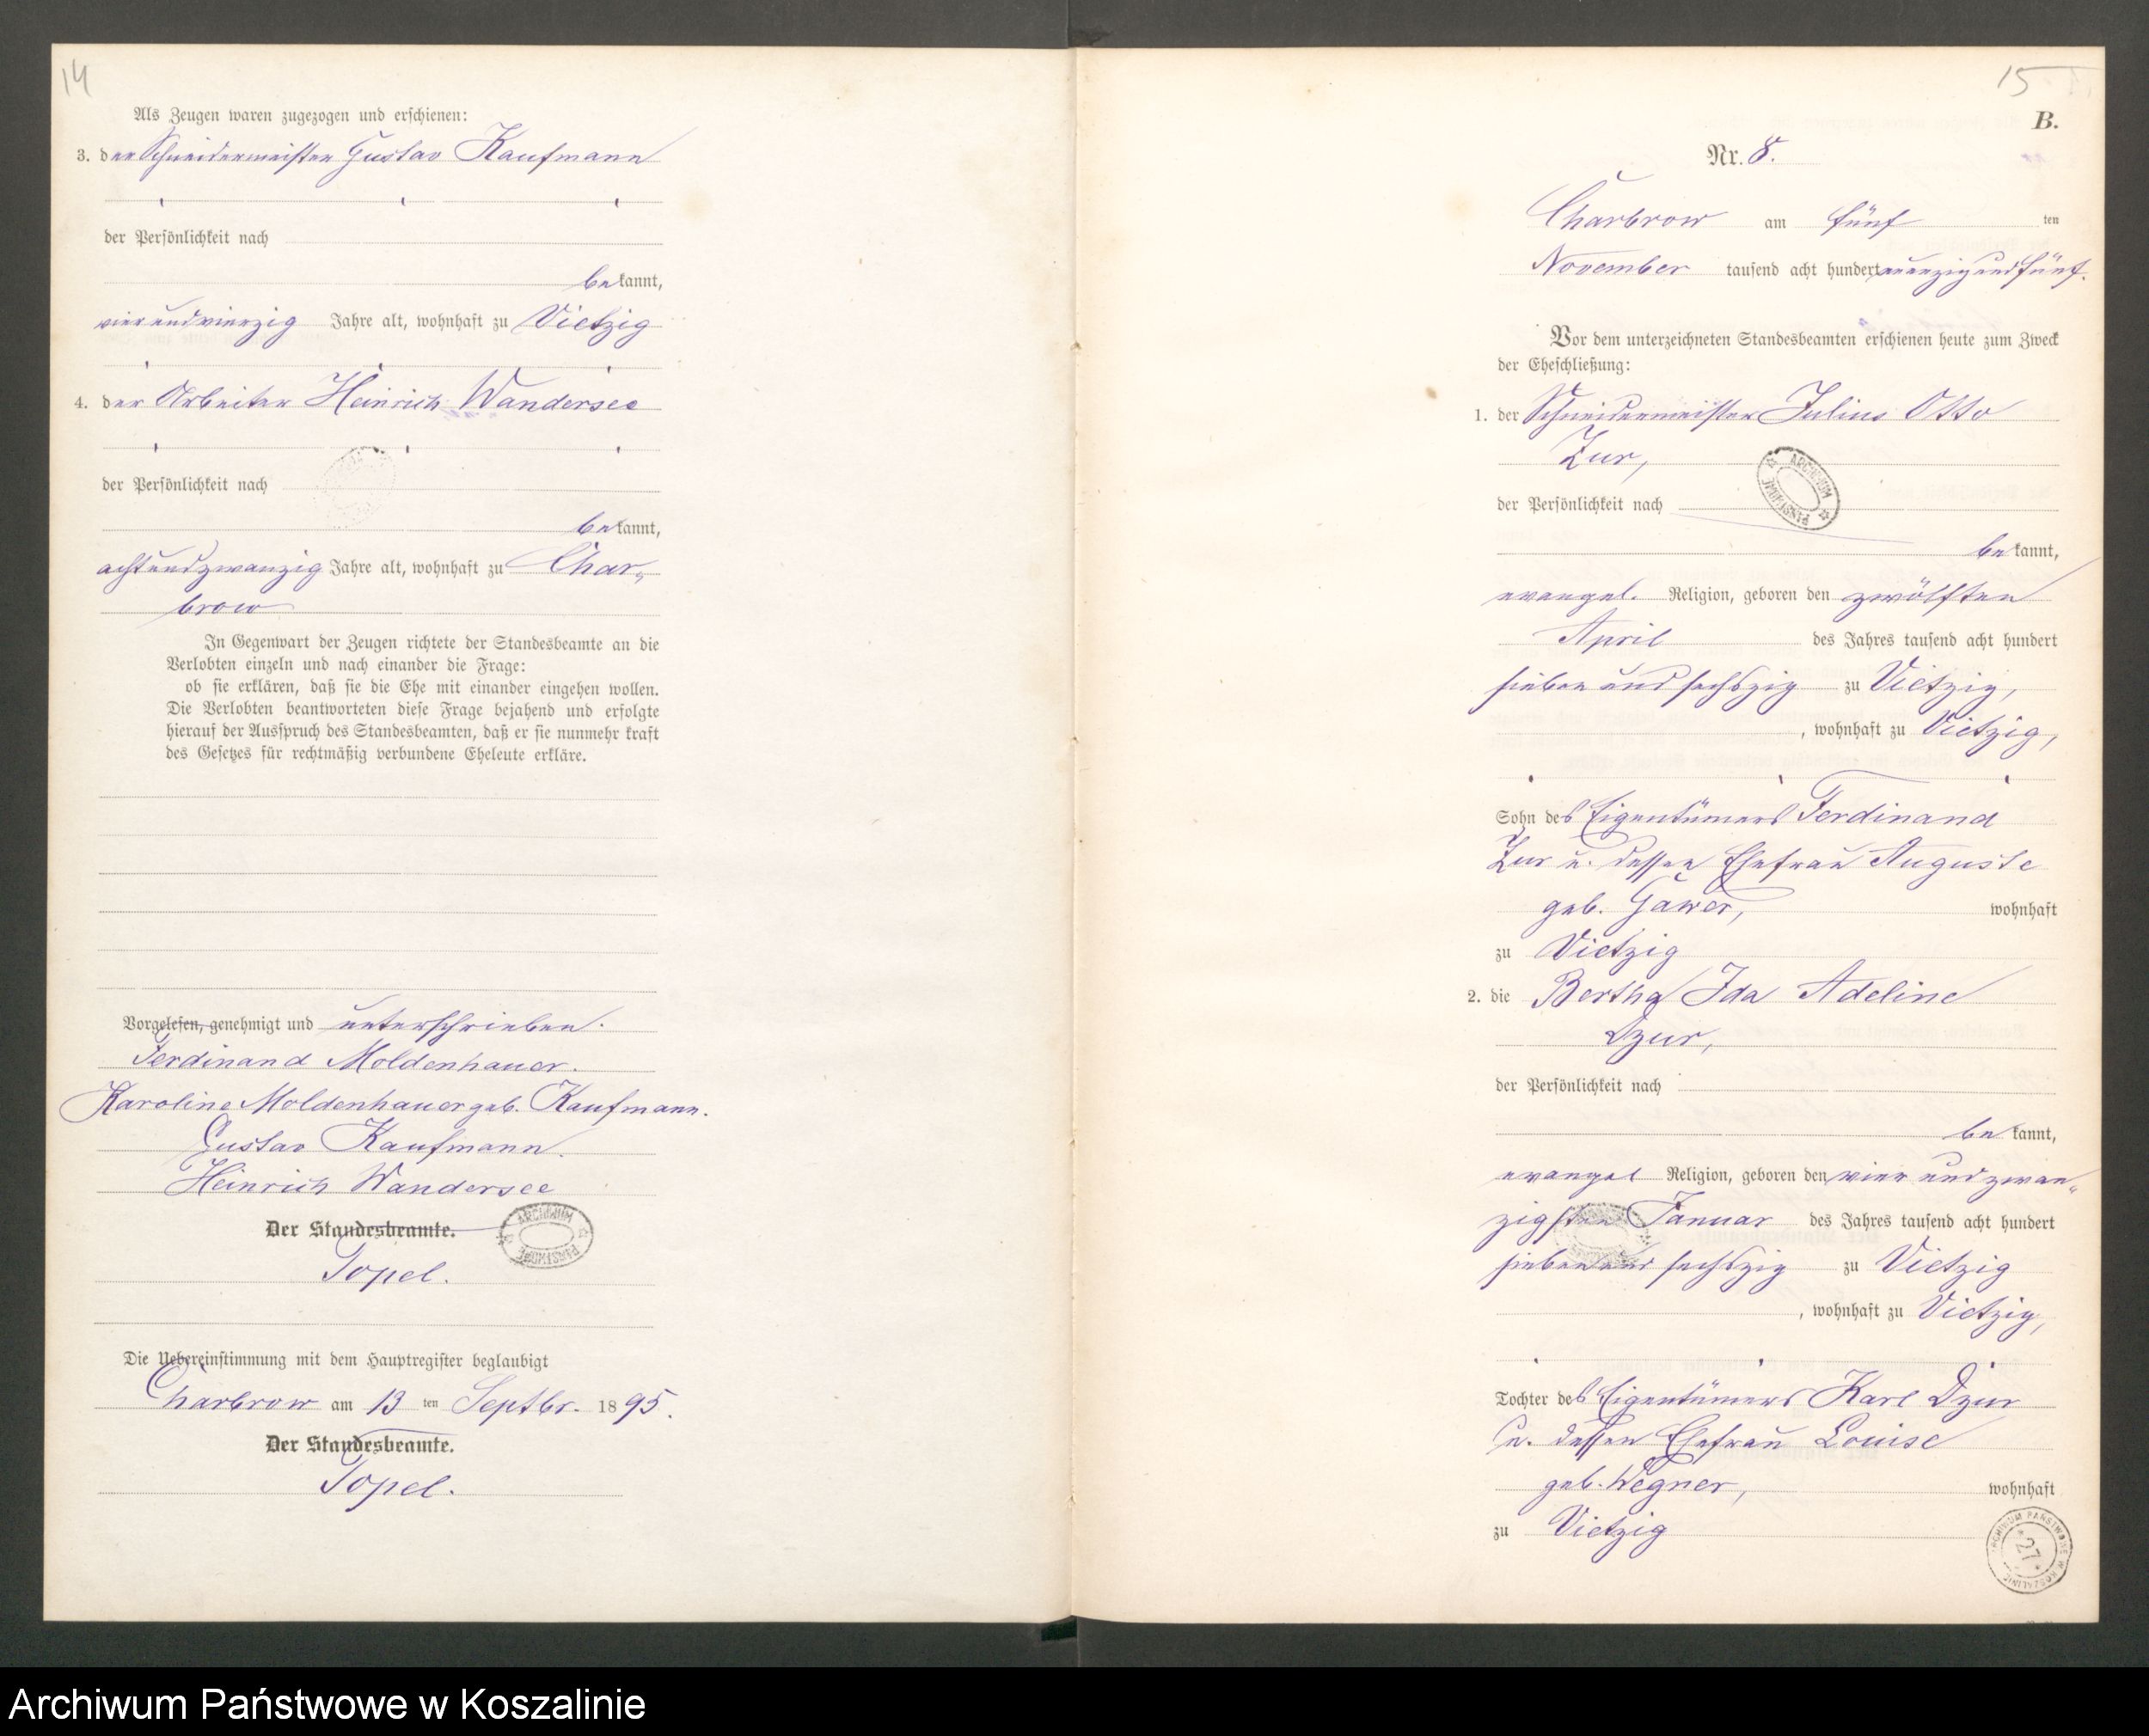 14
Als Zeugen waren zugezogen und erschienen:
3. der Schneidermeister Gustav Kaufmann
der Persönlichkeit nach
bekannt,
vier und vierzig Jahre alt, wohnhaft zu Vietzig
4. der Arbeiter Heinrich Wandersee
der Persönlichkeit nach
bekannt,
achtundzwanzig Jahre alt, wohnhaft zu Char-
brow
In Gegenwart der Zeugen richtete der Standesbeamte an die
Verlobten einzeln und nach einander die Frage:
ob sie erklären, daß sie die Ehe mit einander eingehen wollen.
Die Verlobten beantworteten diese Frage bejahend und erfolgte
hierauf der Ausspruch des Standesbeamten, daß er sie nunmehr kraft
des Gesetzes für rechtmäßig verbundene Eheleute erkläre.
Vorgelesen, genehmigt und unterschrieben.
Ferdinand Moldenhauer.
Karoline Moldenhauer geb. Kaufmann.
Gustav Kaufmann.
Heinrich Wandersee
Der Standesbeamte.
ARCHIWUM PAŃSTWOWE
Topel.
Die Uebereinstimmung mit dem Hauptregister beglaubigt
Charbrow am 13 ten Septbr. 1895.
Der Standesbeamte.
Topel.
15
B.
Nr. 8.
Charbrow am fünf ten
November tausend acht hundert neunzig und fünf.
Vor dem unterzeichneten Standesbeamten erschienen heute zum Zweck
der Eheschließung:
1. der Schneidermeister Julius Otto
Zur,
ARCHIWUM PAŃSTWOWE
der Persönlichkeit nach
bekannt,
evangel. Religion, geboren den zwölften
April des Jahres tausend acht hundert
sieben und sechszig zu Vietzig,
, wohnhaft zu Vietzig,
Sohn des Eigentümers Ferdinand
Zur u. dessen Ehefrau Auguste
geb. Gawer, wohnhaft
zu Vietzig
2. die Bertha Ida Adeline
Dzur,
der Persönlichkeit nach
bekannt,
evangel Religion, geboren den vier und zwan-
zigsten Januar des Jahres tausend acht hundert
sieben und sechszig zu Vietzig
, wohnhaft zu Vietzig,
Tochter des Eigentümers Karl Dzur
u. dessen Ehefrau Louise
geb. Wegner, wohnhaft
zu Vietzig
ARCHIWUM PAŃSTWOWE W KOSZALINIE
* 27 *
Archiwum Państwowe w Koszalinie